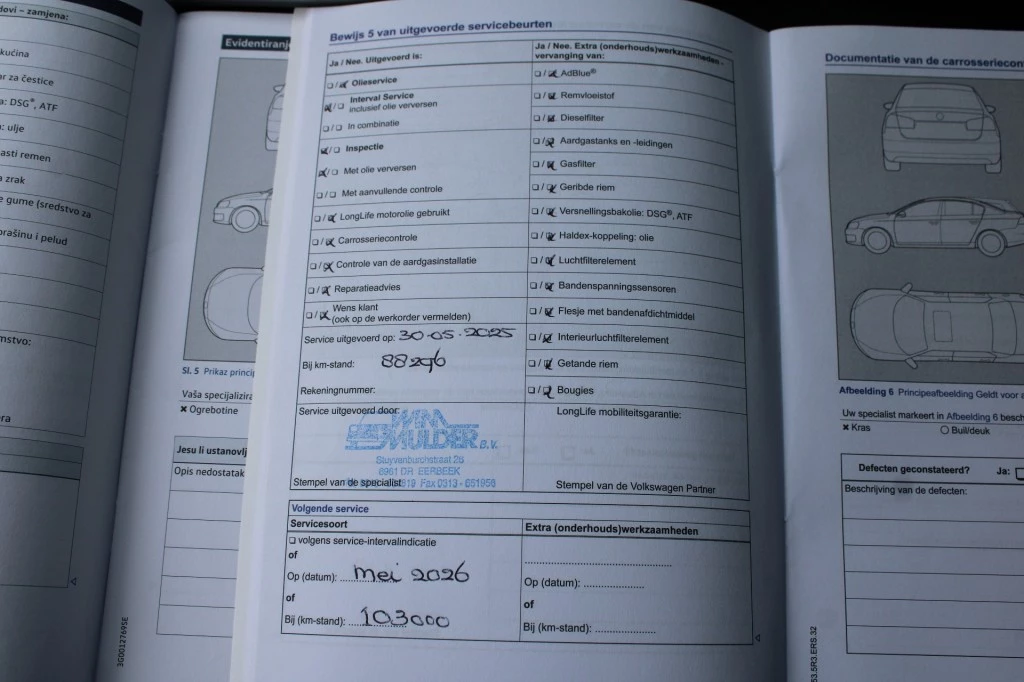 dovi - zamjena:
kućina
ar za čestice
a: DSG®, ATF
: ulje
asti remen
a zrak
e gume (sredstvo za
prašinu i pelud
mstvo:
ora
3G0012769SE
Evidentiranj
Sl. 5 Prikaz princip
Vaša specijalizira
× Ogrebotine
Jesu li ustanovlj
Opis nedostatak
Bewijs 5 van uitgevoerde servicebeurten
Ja / Nee. Uitgevoerd is:
Olieservice
Interval Service
inclusief olie verversen
In combinatie
Inspectie
Met olie verversen
Met aanvullende controle
LongLife motorolie gebruikt
Carrosseriecontrole
Controle van de aardgasinstallatie
Reparatieadvies
Wens klant
(ook op de werkorder vermelden)
Service uitgevoerd op: 30-05-2025
Bij km-stand: 88296
Rekeningnummer:
Service uitgevoerd door:
WIM
MULDER B.V.
Stuyvenburchstraat 26
6961 DR EERBEEK
Fax 0313 - 651956
Stempel van de specialist
Ja / Nee. Extra (onderhouds)werkzaamheden -
vervanging van:
AdBlue®
Remvloeistof
Dieselfilter
Aardgastanks en -leidingen
Gasfilter
Geribde riem
Versnellingsbakolie: DSG®, ATF
Haldex-koppeling: olie
Luchtfilterelement
Bandenspanningssensoren
Flesje met bandenafdichtmiddel
Interieurluchtfilterelement
Getande riem
Bougies
LongLife mobiliteitsgarantie:
Stempel van de Volkswagen Partner
Volgende service
Servicesoort
volgens service-intervalindicatie
of
Op (datum): mei 2026
of
Bij (km-stand): 103000
Extra (onderhouds)werkzaamheden
Op (datum):
of
Bij (km-stand):
Documentatie van de carrosseriecon
Afbeelding 6 Principeafbeelding Geldt voor a
Uw specialist markeert in Afbeelding 6 besch
× Kras
Buil/deuk
Defecten geconstateerd? Ja:
Beschrijving van de defecten:
53.5R3.ERS.32